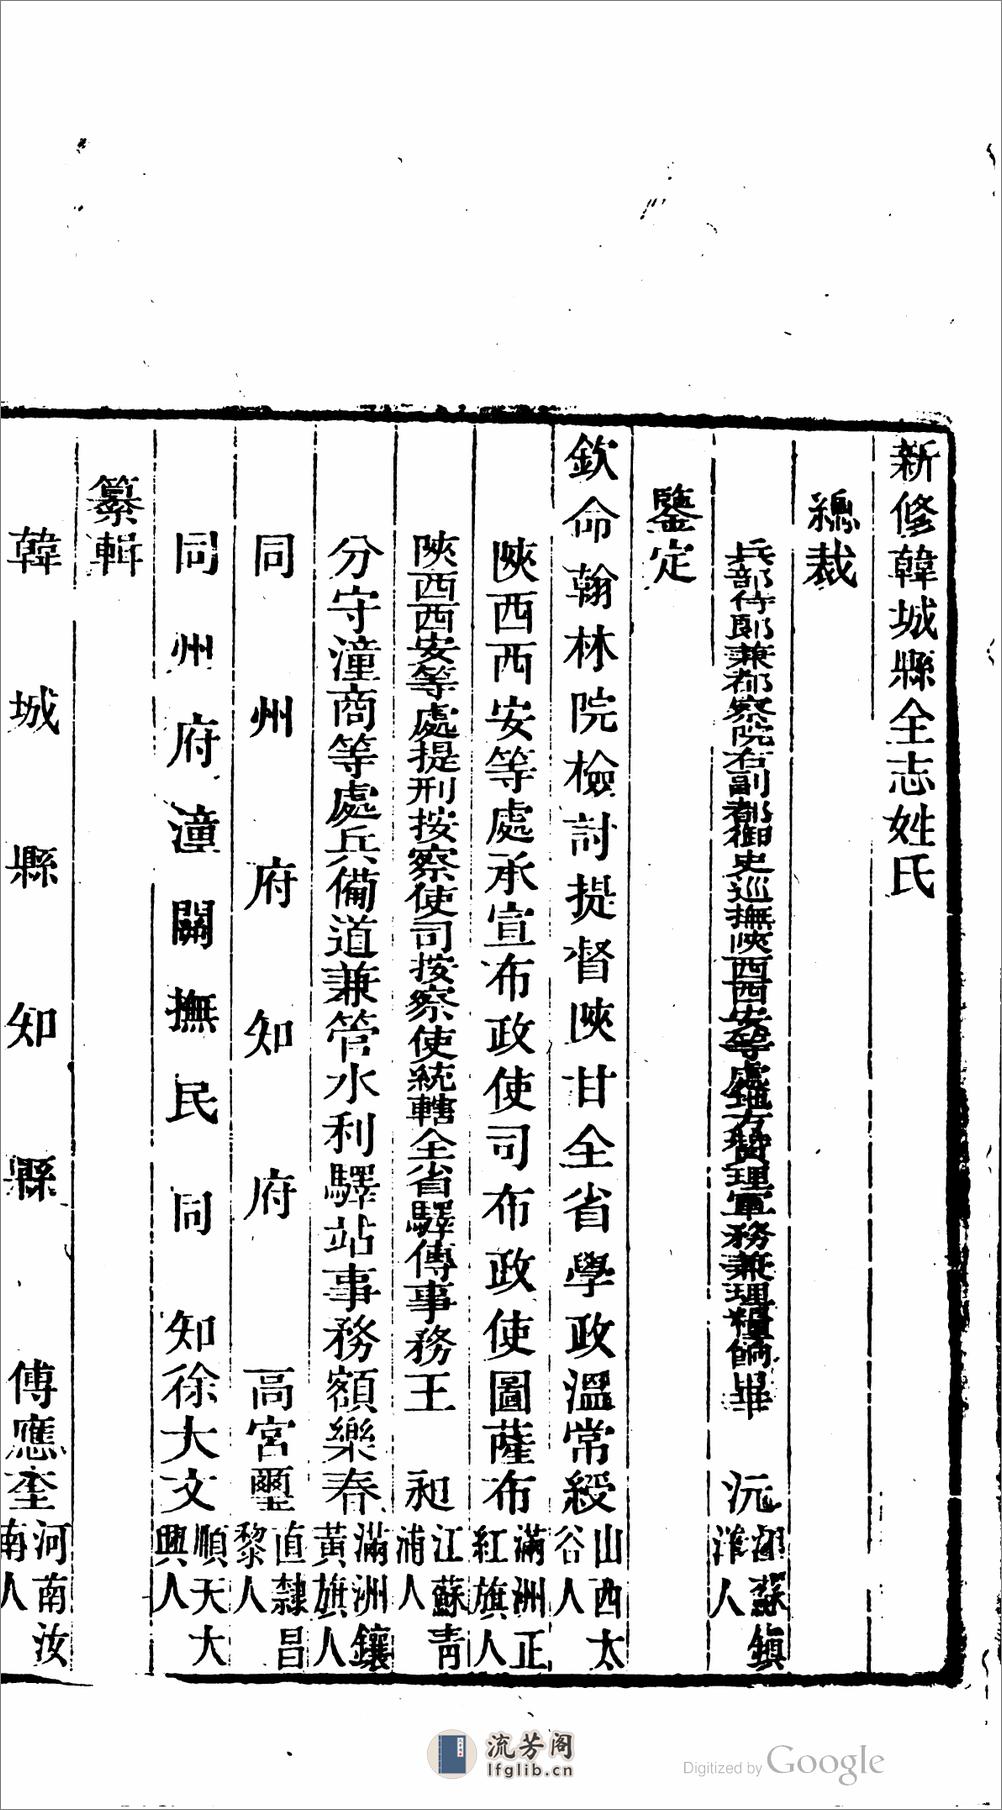 新修韓城縣全志姓氏
總裁
兵部侍郎兼都察院右副都御史巡撫陝西西安等處地方贊理軍務兼理糧餉畢沅江蘇鎮洋人
鑒定
欽命翰林院檢討提督陝甘全省學政溫常綬山西太谷人
陝西西安等處承宣布政使司布政使圖薩布滿洲正紅旗人
陝西西安等處提刑按察使司按察使統轄全省驛傳事務王昶江蘇青浦人
分守潼商等處兵備道兼管水利驛站事務額樂春滿洲鑲黃旗人
同州府知府高宮璽直隸昌黎人
同州府潼關撫民同知徐大文順天大興人
纂輯
韓城縣知縣傅應奎河南汝南人
流芳阁
lfglib.cn
Digitized by Google